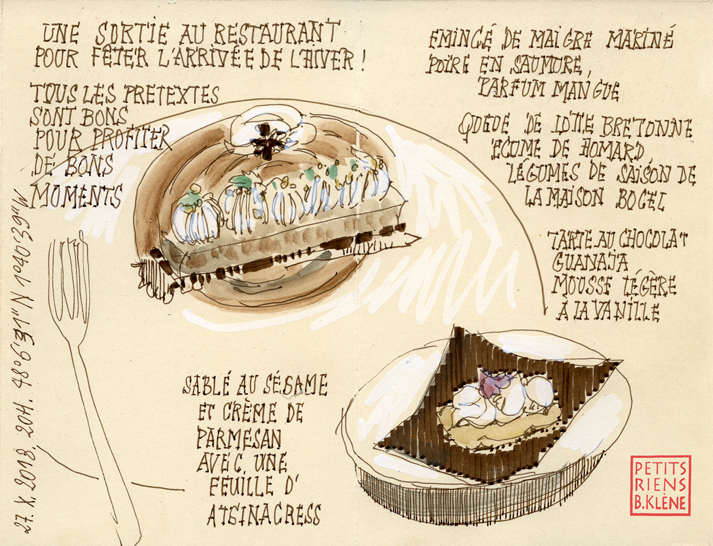 UNE SORTIE AU RESTAURANT
POUR FÊTER L'ARRIVÉE DE L'HIVER !
TOUS LES PRETEXTES
SONT BONS
POUR PROFITER
DE BONS
MOMENTS
EMINCÉ DE MAIGRE MARINÉ
POIRE EN SAUMURE,
PARFUM MANGUE
QUEUE DE LOTTE BRETONNE
ECUME DE HOMARD
LÉGUMES DE SAISON DE
LA MAISON BOGEL
TARTE AU CHOCOLAT
GUANAJA
MOUSSE LÉGÈRE
À LA VANILLE
SABLÉ AU SÉSAME
ET CRÈME DE
PARMESAN
AVEC UNE
FEUILLE D'
ATSINACRESS
27.X.2018.
PETITS
RIENS
B.KLÈNE